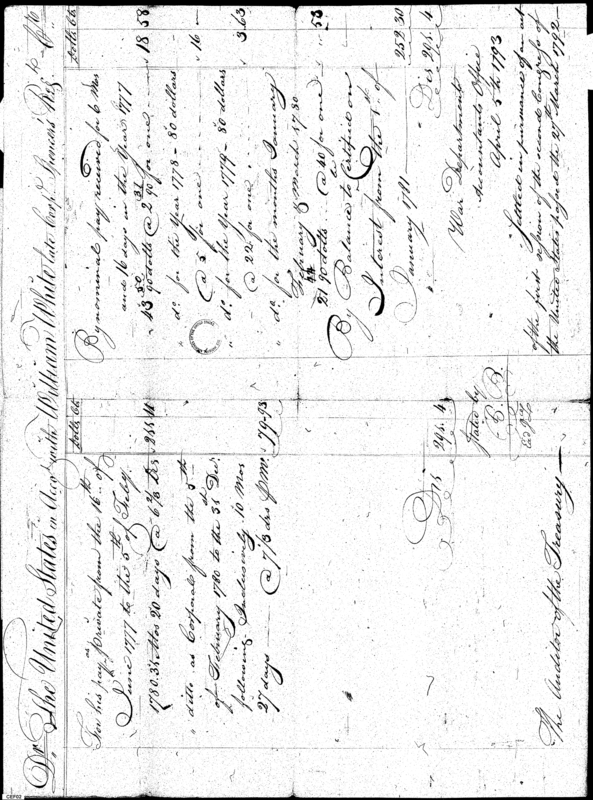 Dr. The United States in Acct. with William White late Corpl. Simons's Regt. Cr.
Dolls 6ts
For his pay as private from the 16th of
June 1777 to the 5th of July
1780. 36 Mos 20 days @ 6 2/3 Drs
" ditto as Corporal from the 5th
of February 1780 to the 31 Decr
following Inclusively 10 Mos
27 days @ 7 1/3 drs pr M. 79.93
Drs 295.4
Stated by
The Auditor of the Treasury
Dolls 6ts
By nominal pay received for 6 Mos
and 16 days in the Year 1777
43 50/90 dolls @ 2 31/90 for one 18 58
" do. for the Year 1778 - 80 dollars
@ 5 for one 16 "
" do. for the Year 1779 - 80 dollars
@ 22 for one 3.63
" do. for the months January
February & March 1780
21 44/90 dolls @ 40 for one " .53
By Balance to Certified on
Interest from the 1st of
January 1781 252.30
Drs 295.4
War Department
Accountants Office
April 5th 1793
Settled in pursuance of an act
of the first session of the second Congress of
the United States passed the 27th March 1792
CEF02